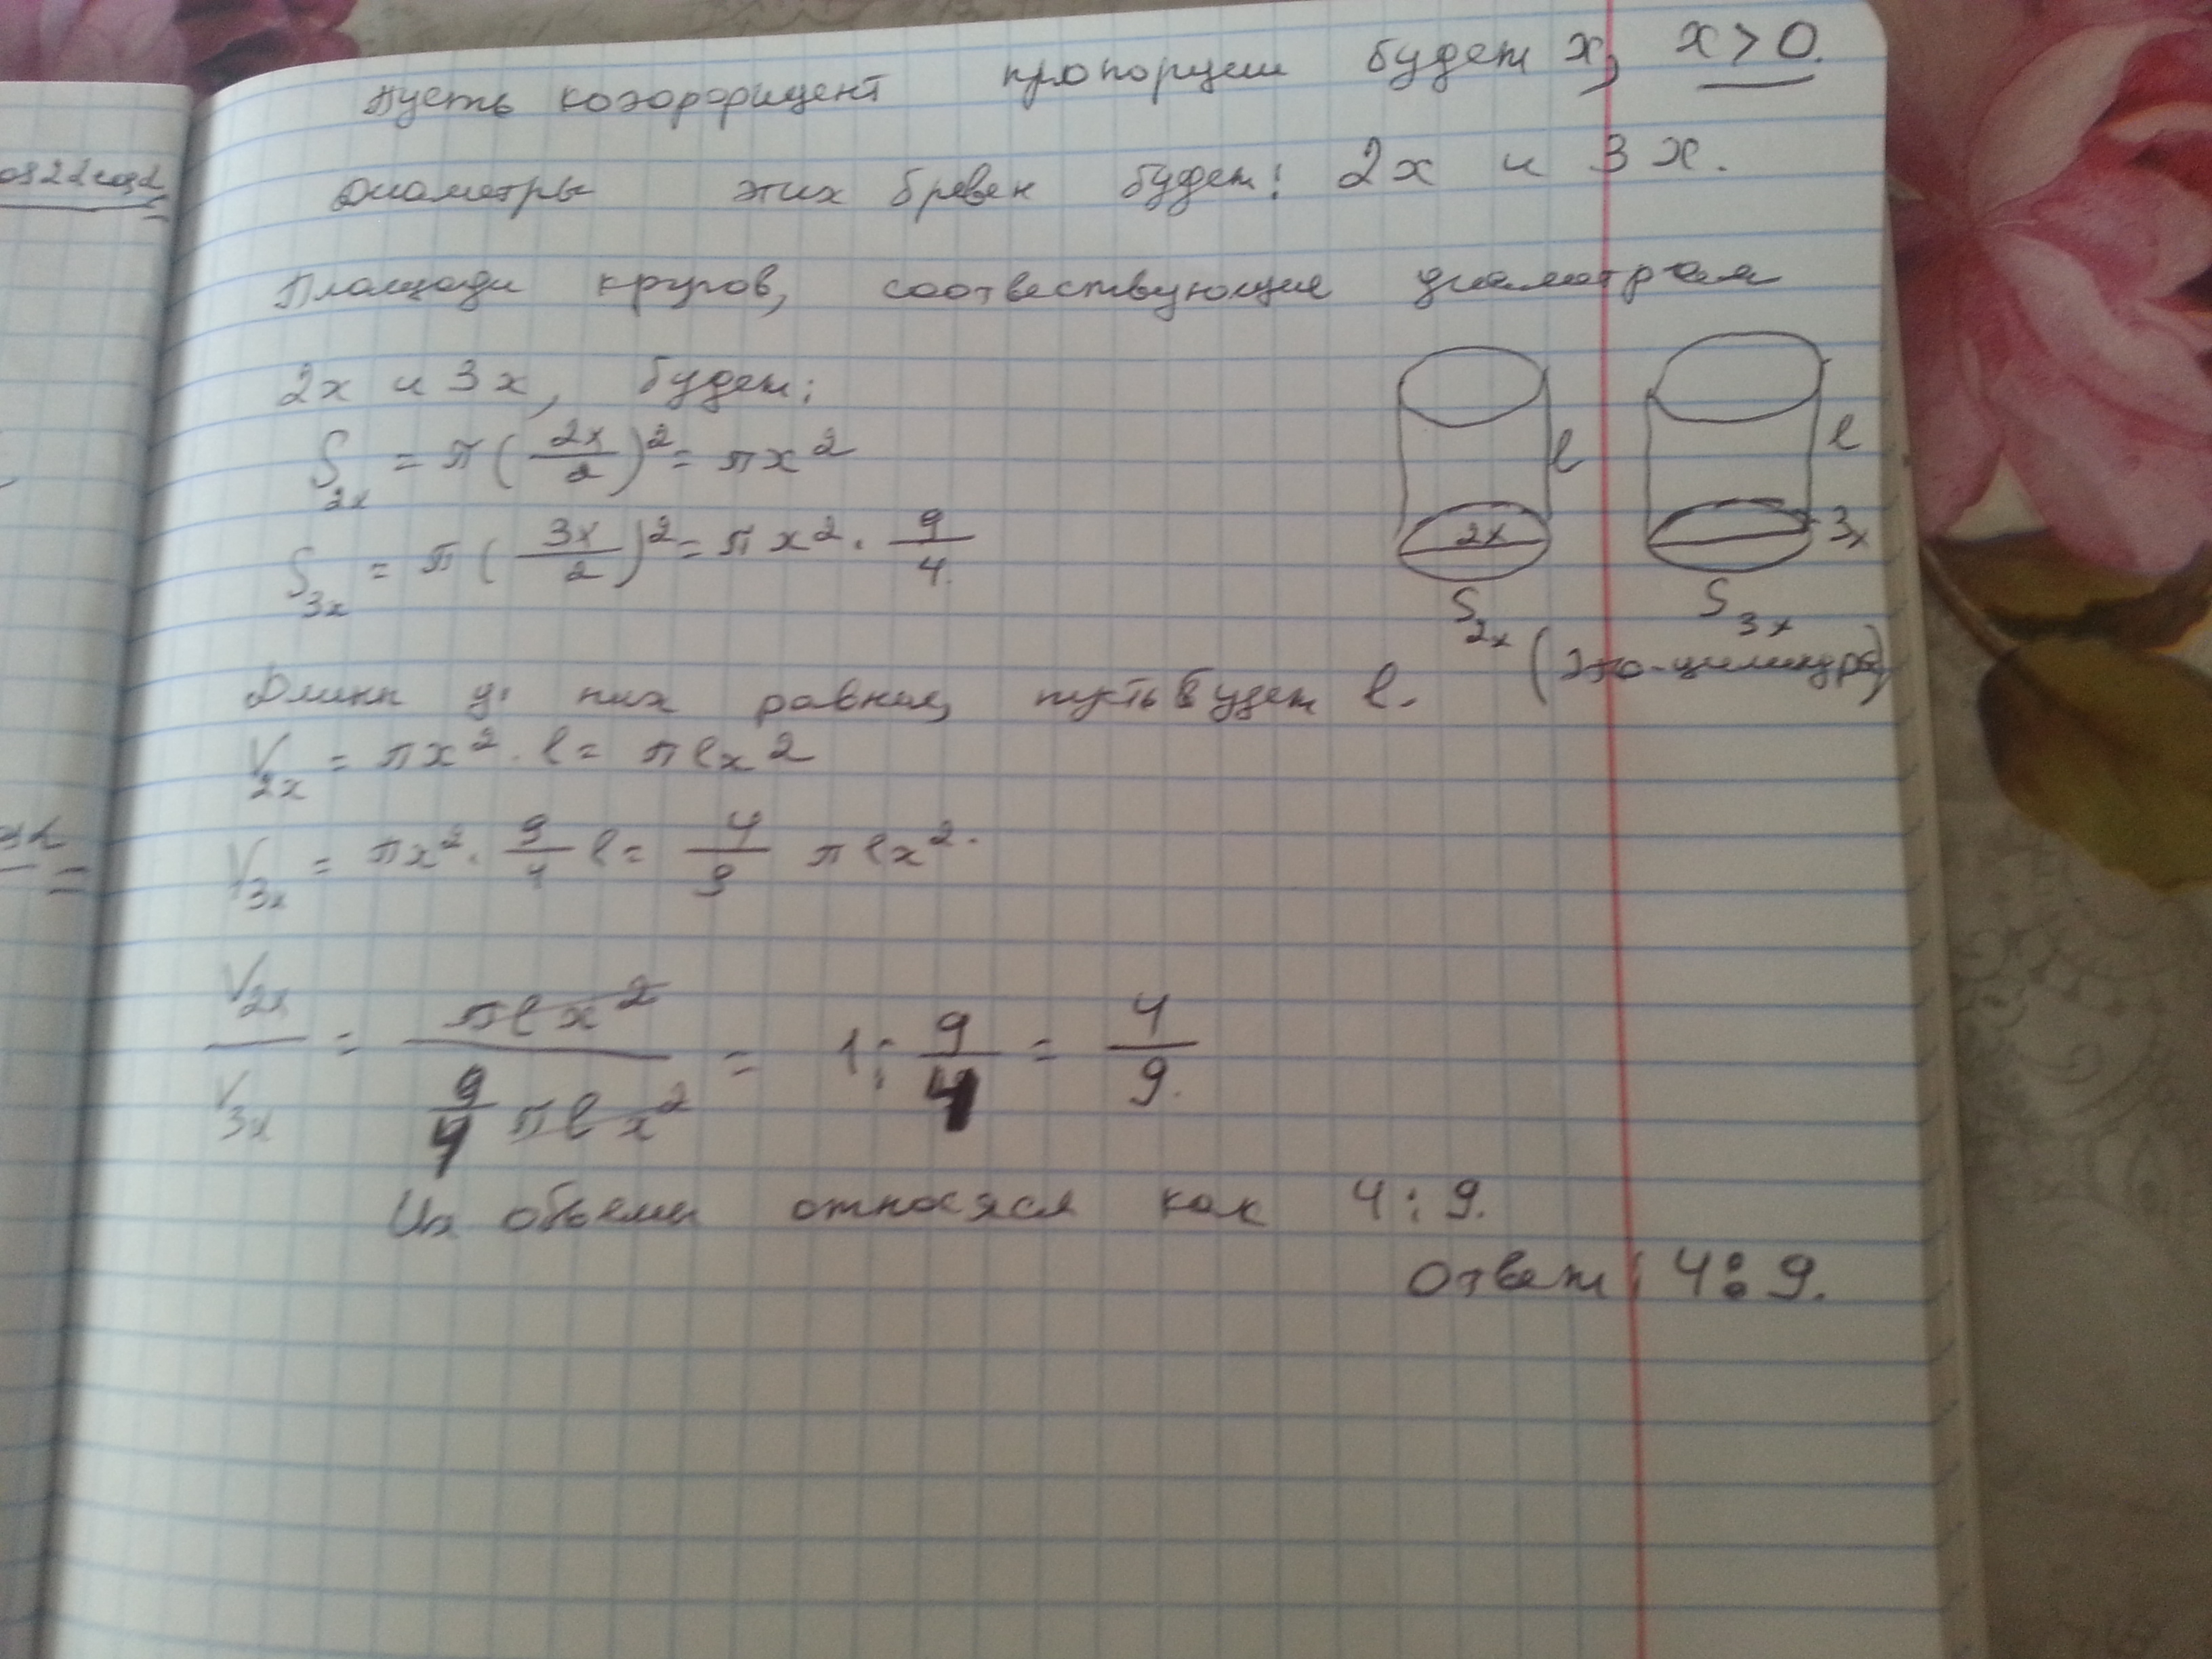 Пусть коэффициент пропорции будет x, x > 0.
Диаметры этих бревен будет: 2x и 3x.
Площади кругов, соотвествующие диаметрам
2x и 3x, будет:
S₂ₓ = π(2x/2)² = πx²
S₃ₓ = π(3x/2)² = πx² · 9/4.
l l
2x 3x
S₂ₓ S₃ₓ
(Это - цилиндры)
Длины у них равные, пусть будет l.
V₂ₓ = πx² · l = πlx²
V₃ₓ = πx² · 9/4 l = 4/9 πlx².
V₂ₓ/V₃ₓ = πlx² / (9/4 πlx²) = 1 : 9/4 = 4/9.
Их объемы относяся как 4 : 9.
Ответ: 4 : 9.